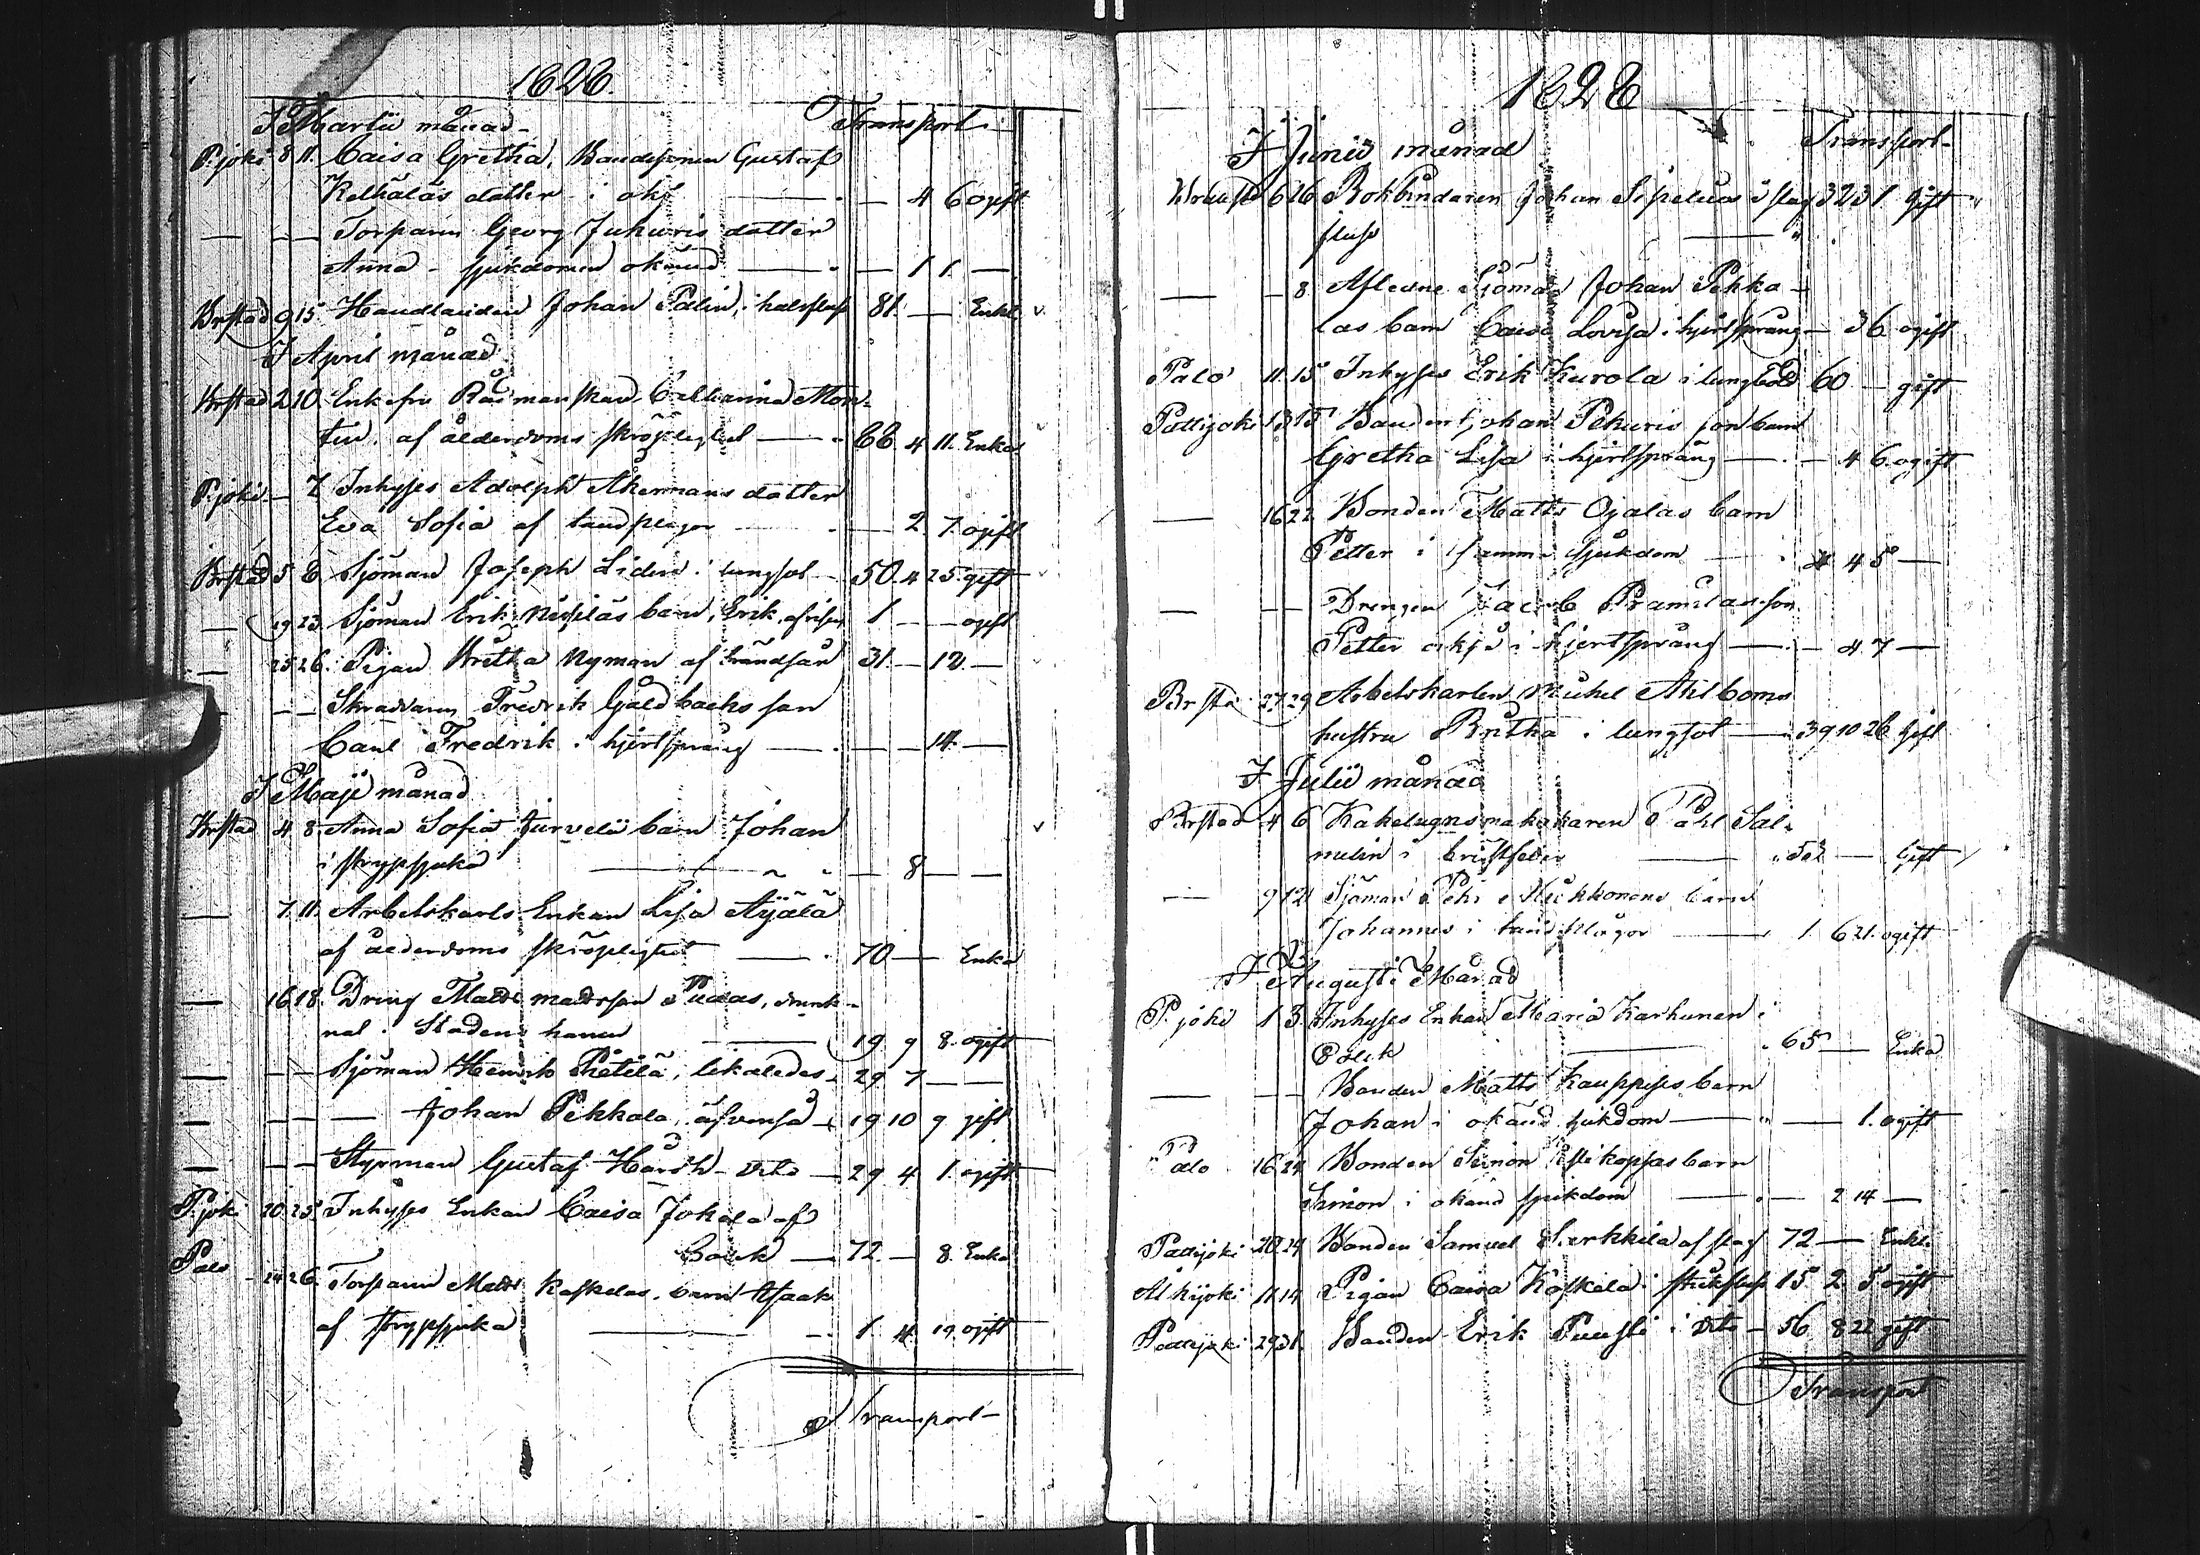 1828
I Martii månad Transport
P.joki 8 11. Caisa Gretha, Bondesonen Gustaf
Kelhäläs dotter i okj — 4 6 ogift
— — — Torparen Georg Juhuris dotter
Anna - sjukdomen okänd — — 1 1. —
Brstad 9 15. Handlanden Johan Palin, i halsfluss 81. — Enkl.
I April månad
Brstad 2 10. Enkefru Rådmanskan Catharina Mon-
tin, af ålderdoms skröplighet — 68 4 11. Enka
P.joki — 7 Inhyses Adolph Åkermans dotter
Eva Sofia af tandplågor — 2 7. ogift
Brstad 5 8 Sjöman Joseph Liden i lungsot 50. 4 25. gift
— 19 23. Sjöman Erik barn, Erik, af 1 — — ogift
— 25 26. Pigan Britha Nyman af 31. — 12. —
— — Skräddaren Fredrik Guldbacks son
Carl Fredrik i hjertsprång — — — 14. —
I Maji månad
Brstad 4 8. Anna Sofia Jurvelä barn Johan
i strypsjuka — 8 — —
— 7. 11. Arbetskarls Enkan Lisa Äijälä
af ålderdoms skröplighet 70 — Enka
— 16 18. Dräng Matts Mattsson Pudas, drunk-
nat i Stadens hamn 19 9 8. ogift
— — — Sjöman Henrik Pietilä, likaledes 29 7 — —
— — — — Johan Pekkala, äfvenså 19 10 9 gift
— — — Styrman Gustaf Hårdh dito 29 4 1. ogift
P.joki 20 25. Inhyses Enkan Caisa Jokela af
Bolck — 72. — 8. Enka
Palo 24 26. Torparen Matts Koskelas barn Isaak
af strypsjuka — 1. 4. 19. ogift
Transport
1828
I Junii månad Transport
Brhustad 6 16 Bokbindaren Johan Sipelius i slag 32 3 1. gift
fluss
— — 8. Aflidne Sjöman Johan Pekka-
las barn Caisa Lovisa i hjertsprång — 3 6 ogift
Palo 11. 15 Inhyses Erik Kurola i lungsot 60 — gift
Pattijoki 13 15 Bonden Johan Pekuris son barn
Gretha Lisa i hjertsprång — — 4 6. ogift
— 16 22 Bonden Matts Ojalas barn
Petter i samma sjukdom — 4 5 —
— — — Drengen Jacob son
Petter i hjertsprång — — 4. 7 —
Brsta 27. 29 Arbetskarlen Michel Ahlboms
hustru Britha i lungsot — 39 10 26 gift
I Julii månad
Brstad 4 6 Kakelugnsmakakaren Påhl Sal-
melin i bröstfeber — Gift
— 9 12 Sjöman Pehr barn
Johannes i tandplågor — 1. 6 21. ogift
I Augusti Månad
P.joki 1 3. Inhyses Enkan Maria Karhunen i
Bolck — 65 — Enka
— — — Bonden Matts Kauppises barn
Johan i okänd sjukdom — — 1. ogift
Palo 16 24 Bonden Simon barn
Simon i okänd sjukdom — — 2 14 —
Pattijoki 20 24 Bonden Samuel Sarkkila af slag 72 — Enkl.
Alkijoki 11 14 Pigan Caisa Koskela i 15 2 5 ogift
Pattijoki 29 31. Bonden Erik Puusti i dito — 56 8 22 gift
Transport